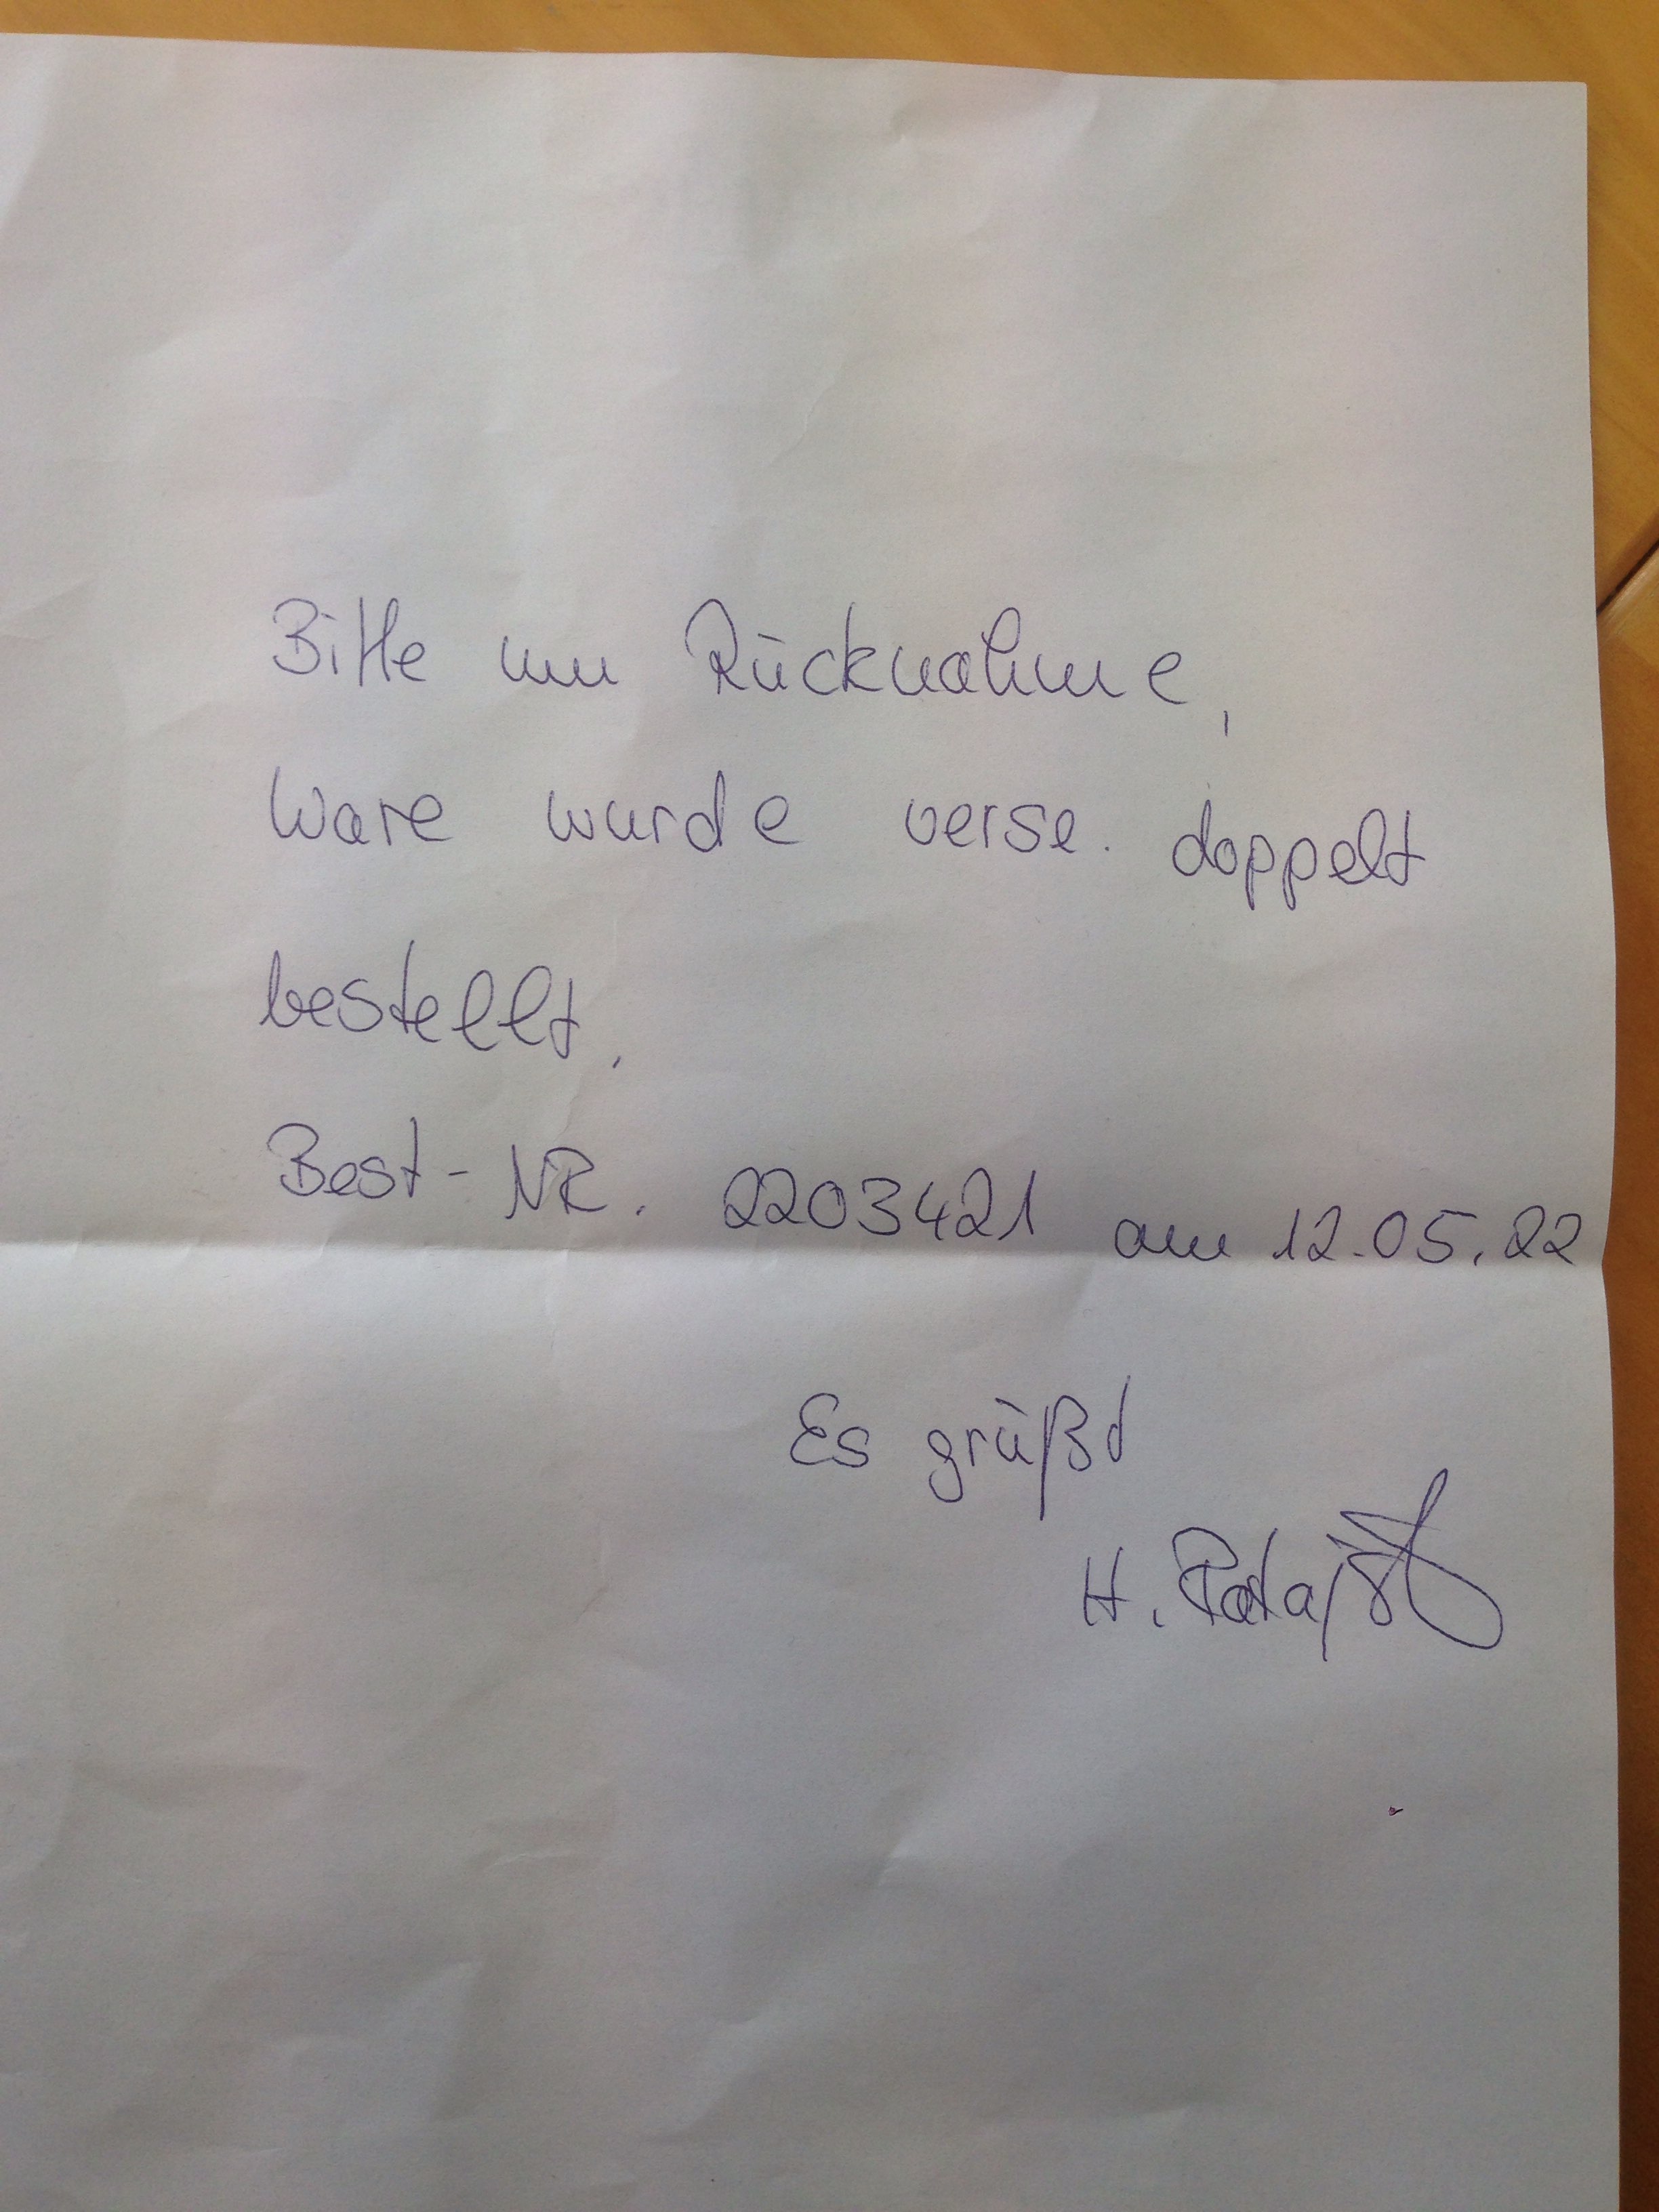 Bitte um Rücknahme,
Ware wurde verse. doppelt
bestellt.
Best-NR. 2203421 am 12.05.22
Es grüßt
H.